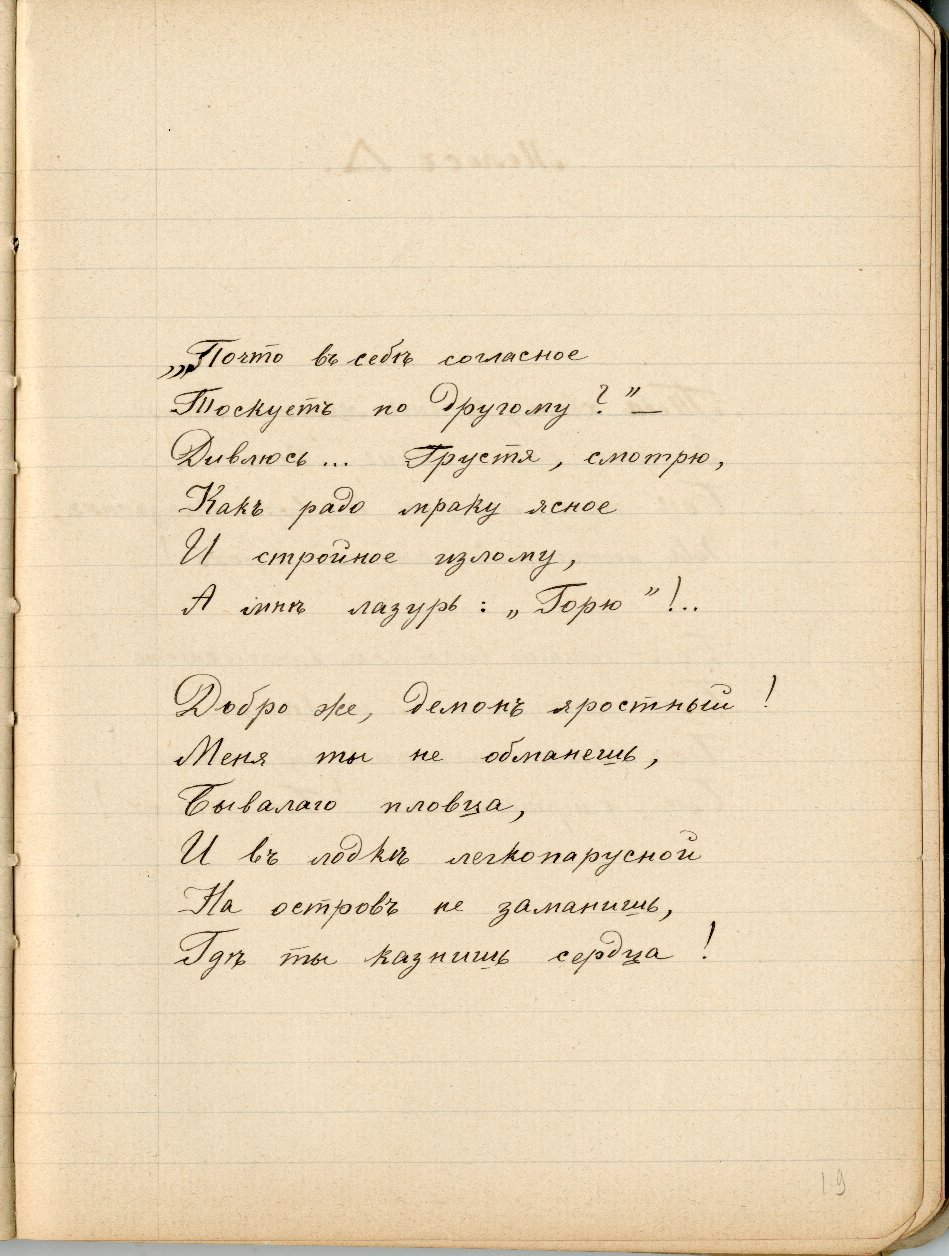 „Почто въ себѣ согласное
Тоскуетъ по другому?"—
Дивлюсь... Грустя, смотрю,
Какъ радо мраку ясное
И стройное излому,
А мнѣ лазурь: „Горю"!..
Добро же, демонъ яростный!
Меня ты не обманешь,
Бывалаго пловца,
И въ лодкѣ легкопарусной
На островъ не заманишь,
Гдѣ ты казнишь сердца!
19